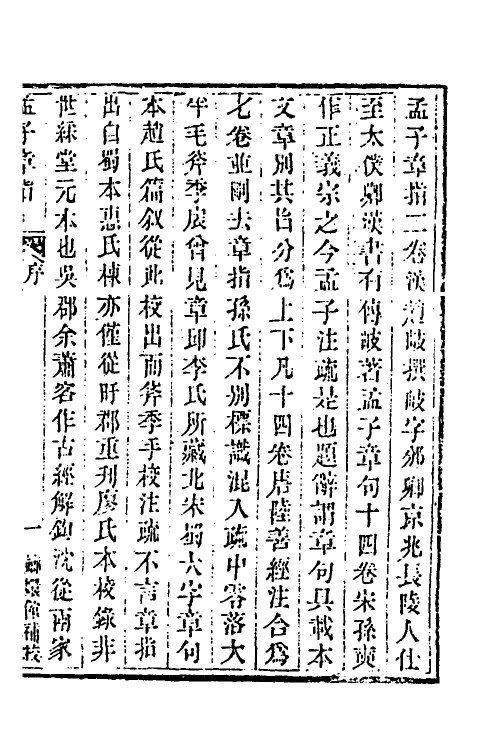 孟子章指二卷漢趙岐撰岐字邠卿京兆長陵人仕
至太僕卿漢書有傳岐著孟子章句十四卷宋孫奭
作正義宗之今孟子注疏是也題辭謂章句具載本
文章別其旨分爲上下凡十四卷唐陸善經注合爲
七卷並刪去章指孫氏不別標識混入疏中零落大
半毛斧季扆曾見章邱李氏所藏北宋蜀大字章句
本趙氏篇敘從此校出而斧季手校注疏不言章指
出自蜀本惠氏棟亦僅從盱郡重刊廖氏本校錄非
世綵堂元本也吳郡余蕭客作古經解鉤沈從兩家
孟子章指 序 一 嫏嬛館補校